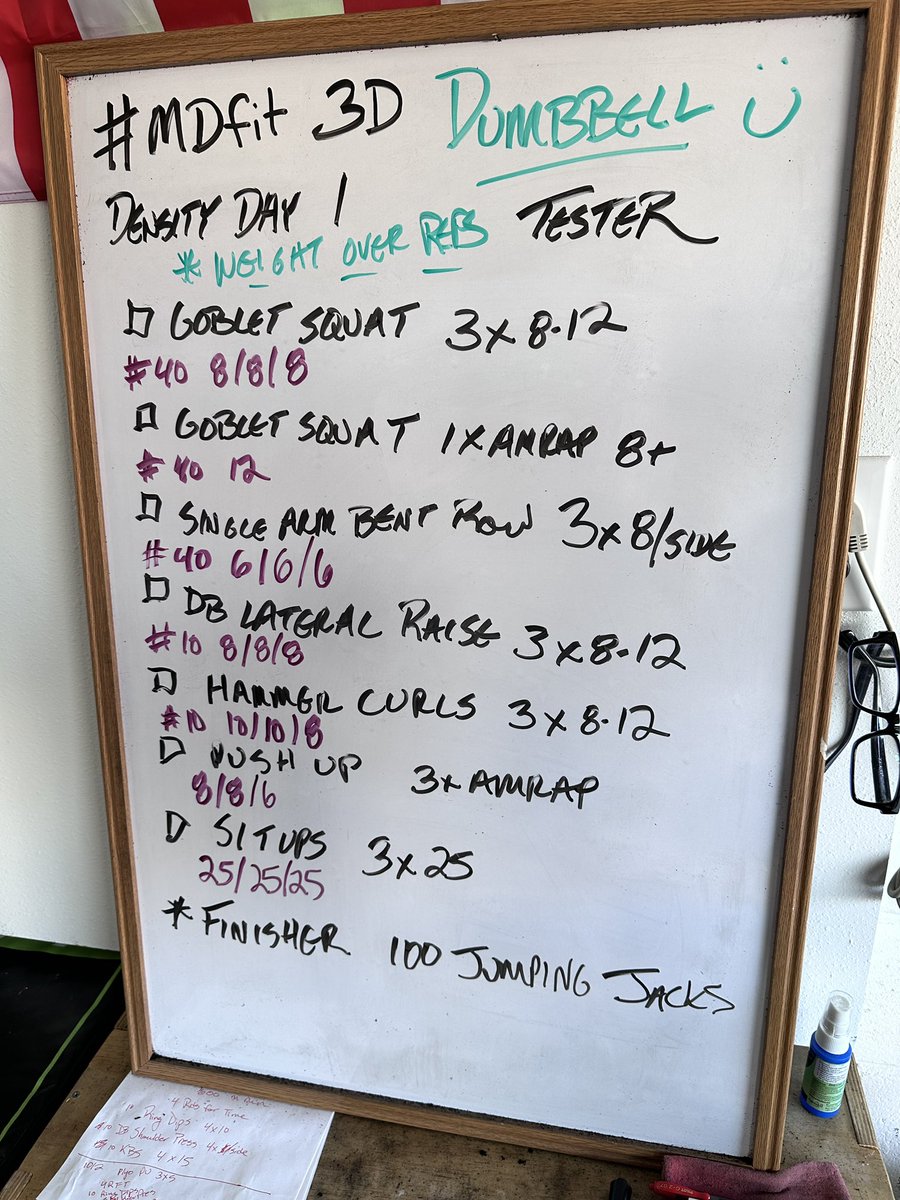 #MDfit 3D DUMBBELL
DENSITY DAY 1 TESTER
* WEIGHT OVER REPS
GOBLET SQUAT 3x8-12
#40 8/8/8
GOBLET SQUAT 1xAMRAP 8+
#40 12
SINGLE ARM BENT ROW 3x8/SIDE
#40 6/6/6
DB LATERAL RAISE 3x8-12
#10 8/8/8
HAMMER CURLS 3x8-12
#10 10/10/8
PUSH UP 3xAMRAP
8/8/6
SITUPS 3x25
25/25/25
* FINISHER 100 JUMPING JACKS
4 Rds for Time
Ring Dips 4x10
DB Shoulder Press 4x8/side
KBS 4x15
3x5